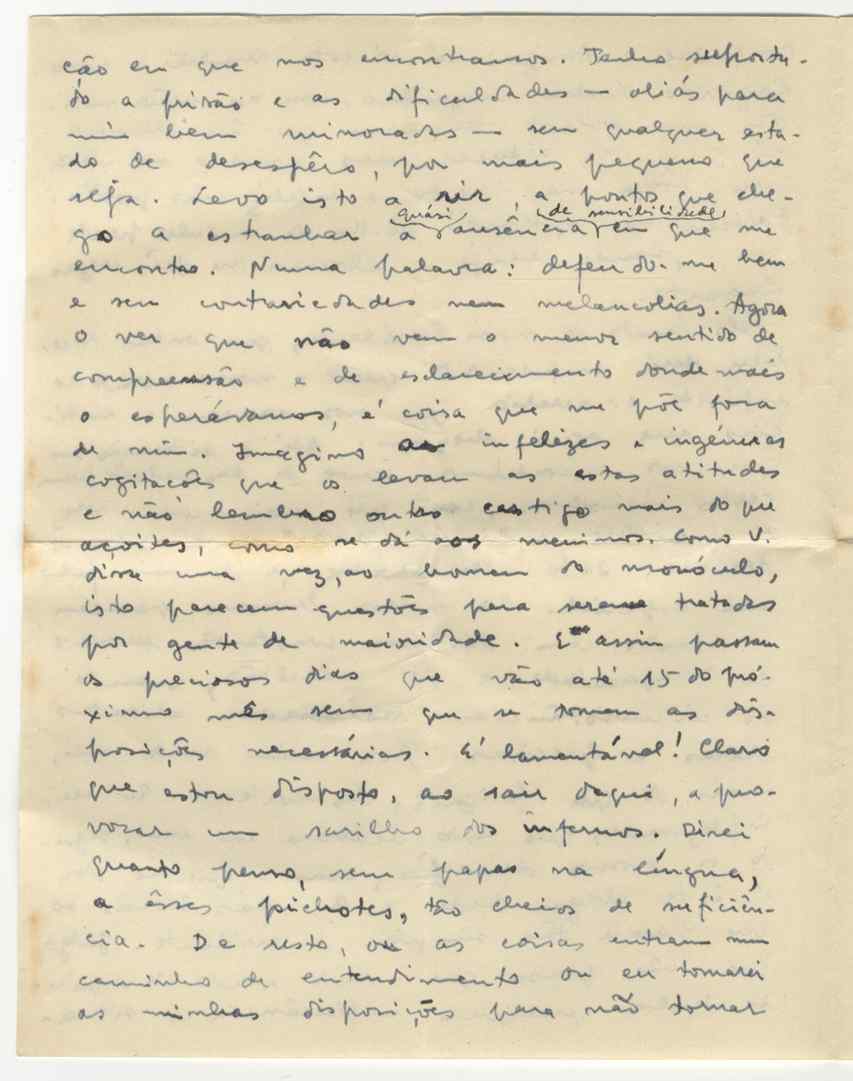 ção em que nos encontramos. Tenho suporta-
do a prisão e as dificuldades — aliás para
mim bem minoradas — sem qualquer esta-
do de desespêro, por mais pequeno que
seja. Levo isto a rir, a pontos que che-
quási de sensibilidade
go a estranhar a ausência em que me
encontro. Numa palavra: defendo-me bem
e sem contrariedades nem melancolias. Agora
o ver que não vem o menor sentido de
compreensão e de esclarecimento donde mais
o esperávamos, é coisa que me põe fora
de mim. Imagino as infelizes e ingénuas
cogitações que os levam as estas atitudes
e não lembro outro castigo mais do que
açoites, como se dá aos meninos. Como V.
disse uma vez, ao homem do monóculo,
isto parecem questões para serem tratadas
por gente de maioridade. E assim passam
os preciosos dias que vão até 15 do pró-
ximo mês sem que se tomem as dis-
posições necessárias. É lamentável! Claro
que estou disposto, ao sair daqui, a pro-
vocar um sarilho dos infernos. Direi
quanto penso, sem papas na língua,
a êsses pichotes, tão cheios de suficiên-
cia. De resto, ou as coisas entram num
caminho de entendimento ou eu tomarei
as minhas disposições para não tornar